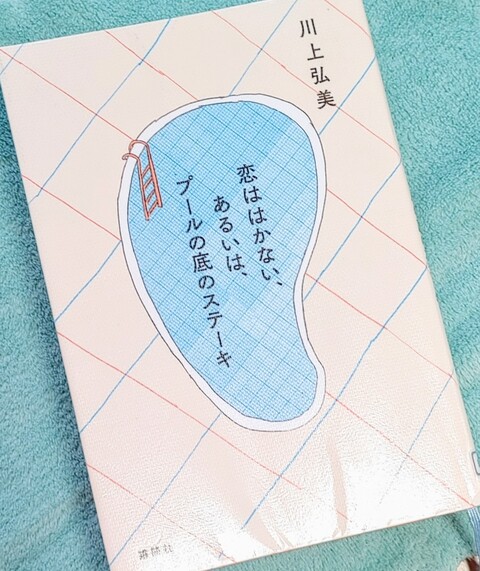 川上弘美
恋ははかない、
あるいは、
プールの底のステーキ
講談社